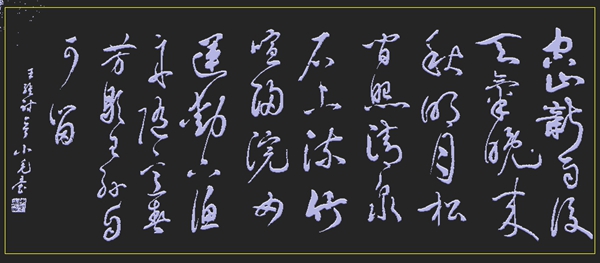 空山新雨後
天氣晚來
秋明月松
間照清泉
石上流竹
喧歸浣女
蓮動下漁
舟隨意春
芳歇王孫自
可留
王維詩